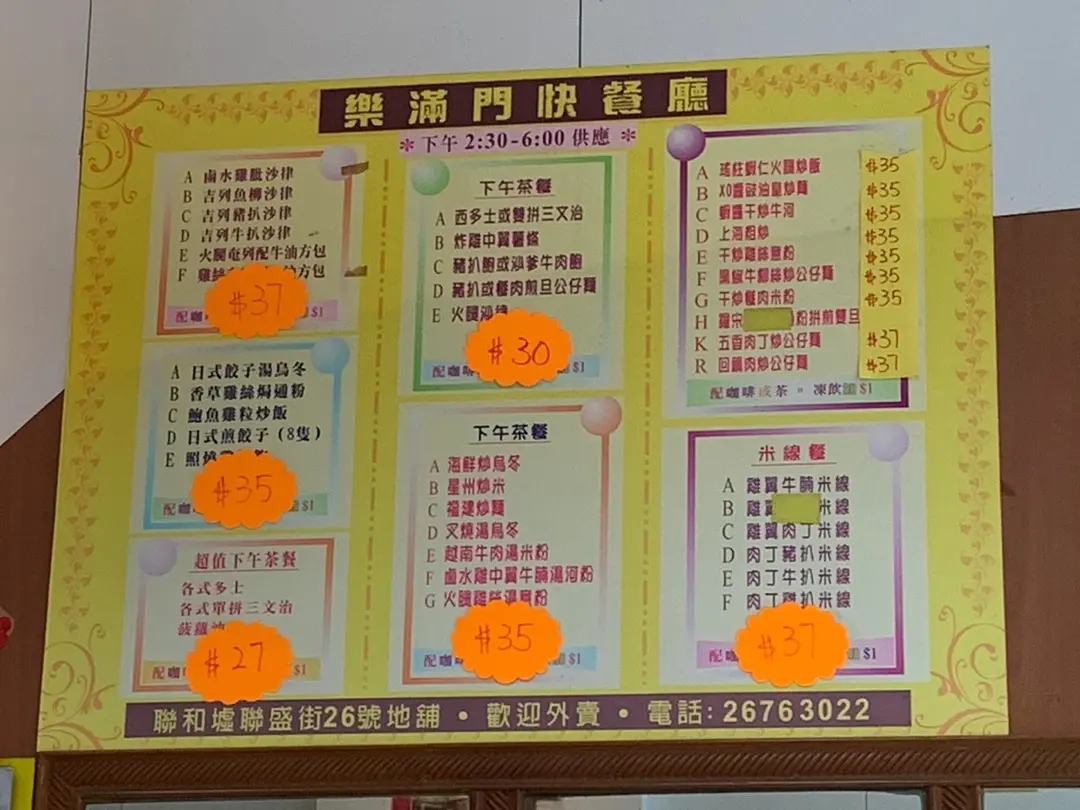 樂滿門快餐廳
*下午 2:30-6:00 供應 *
A 鹵水雞髀沙律
B 吉列魚柳沙律
C 吉列豬扒沙律
D 吉列牛扒沙律
E 火腿奄列配牛油方包
F 雞絲 方包
$37
配咖 $1
A 日式餃子湯烏冬
B 香草雞絲焗通粉
C 鮑魚雞粒炒飯
D 日式煎餃子 (8隻)
E 照燒
$35
配咖 $1
超值下午茶餐
各式多士
各式單拼三文治
菠蘿油
$27
配咖 $1
下午茶餐
A 西多士或雙拼三文治
B 炸雞中翼薯條
C 豬扒飽或沙爹牛肉飽
D 豬扒或餐肉煎旦公仔麵
E 火腿沙律
$30
配咖啡 $1
下午茶餐
A 海鮮炒烏冬
B 星州炒米
C 福建炒麵
D 叉燒湯烏冬
E 越南牛肉湯米粉
F 鹵水雞中翼牛腩湯河粉
G 火腿雞絲湯 粉
$35
配咖 $1
A 瑤柱蝦仁火腿炒飯 $35
B XO醬豉油皇炒麵 $35
C 蝦醬干炒牛河 $35
D 上海粗炒 $35
E 干炒雞絲意粉 $35
F 黑椒牛柳絲炒公仔麵 $35
G 干炒餐肉米粉 $35
H 羅宋 粉拼煎雙旦
K 五香肉丁炒公仔麵 $37
R 回鍋肉炒公仔麵 $37
配咖啡或茶。凍飲 $1
米線餐
A 雞翼牛腩米線
B 雞翼 米線
C 雞翼肉丁米線
D 肉丁豬扒米線
E 肉丁牛扒米線
F 肉丁雞扒米線
$37
配咖 $1
聯和墟聯盛街26號地舖 • 歡迎外賣 • 電話: 26763022